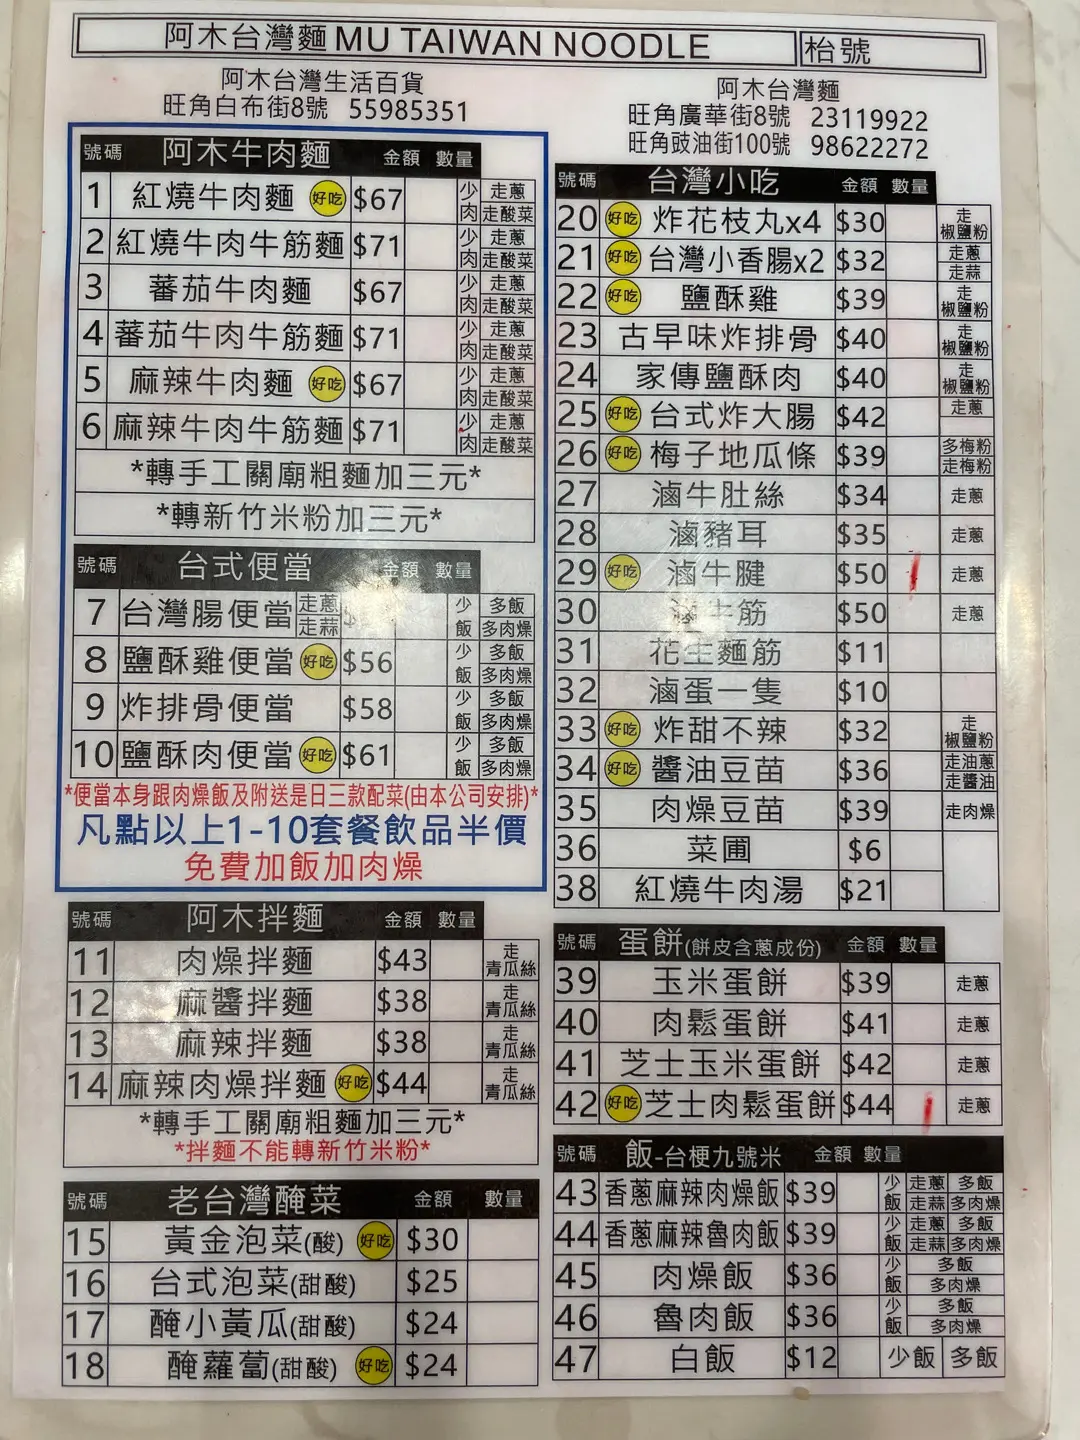 阿木台灣麵 MU TAIWAN NOODLE 枱號
阿木台灣生活百貨
旺角白布街8號 55985351
阿木台灣麵
旺角廣華街8號 23119922
旺角豉油街100號 98622272
號碼 阿木牛肉麵 金額 數量
1 紅燒牛肉麵 好吃 $67 少肉 走蔥 走酸菜
2 紅燒牛肉牛筋麵 $71 少肉 走蔥 走酸菜
3 蕃茄牛肉麵 $67 少肉 走蔥 走酸菜
4 蕃茄牛肉牛筋麵 $71 少肉 走蔥 走酸菜
5 麻辣牛肉麵 好吃 $67 少肉 走蔥 走酸菜
6 麻辣牛肉牛筋麵 $71 少肉 走蔥 走酸菜
*轉手工關廟粗麵加三元*
*轉新竹米粉加三元*
號碼 台式便當 金額 數量
7 台灣腸便當 走蔥 走蒜 少飯 多飯 多肉燥
8 鹽酥雞便當 好吃 $56 少飯 多飯 多肉燥
9 炸排骨便當 $58 少飯 多飯 多肉燥
10 鹽酥肉便當 好吃 $61 少飯 多飯 多肉燥
*便當本身跟肉燥飯及附送是日三款配菜(由本公司安排)*
凡點以上1-10套餐飲品半價
免費加飯加肉燥
號碼 阿木拌麵 金額 數量
11 肉燥拌麵 $43 走青瓜絲
12 麻醬拌麵 $38 走青瓜絲
13 麻辣拌麵 $38 走青瓜絲
14 麻辣肉燥拌麵 好吃 $44 走青瓜絲
*轉手工關廟粗麵加三元*
*拌麵不能轉新竹米粉*
號碼 老台灣醃菜 金額 數量
15 黃金泡菜(酸) 好吃 $30
16 台式泡菜(甜酸) $25
17 醃小黃瓜(甜酸) $24
18 醃蘿蔔(甜酸) 好吃 $24
號碼 台灣小吃 金額 數量
20 好吃 炸花枝丸x4 $30 走椒鹽粉
21 好吃 台灣小香腸x2 $32 走蔥 走蒜
22 好吃 鹽酥雞 $39 走椒鹽粉
23 古早味炸排骨 $40 走椒鹽粉
24 家傳鹽酥肉 $40 走椒鹽粉
25 好吃 台式炸大腸 $42 走蔥
26 好吃 梅子地瓜條 $39 多梅粉 走梅粉
27 滷牛肚絲 $34 走蔥
28 滷豬耳 $35 走蔥
29 好吃 滷牛腱 $50 走蔥
30 滷牛筋 $50 走蔥
31 花生麵筋 $11
32 滷蛋一隻 $10
33 好吃 炸甜不辣 $32 走椒鹽粉
34 好吃 醬油豆苗 $36 走油蔥 走醬油
35 肉燥豆苗 $39 走肉燥
36 菜圃 $6
38 紅燒牛肉湯 $21
號碼 蛋餅(餅皮含蔥成份) 金額 數量
39 玉米蛋餅 $39 走蔥
40 肉鬆蛋餅 $41 走蔥
41 芝士玉米蛋餅 $42 走蔥
42 好吃 芝士肉鬆蛋餅 $44 走蔥
號碼 飯-台梗九號米 金額 數量
43 香蔥麻辣肉燥飯 $39 少飯 走蔥 多飯 走蒜 多肉燥
44 香蔥麻辣魯肉飯 $39 少飯 走蔥 多飯 走蒜 多肉燥
45 肉燥飯 $36 少飯 多飯 多肉燥
46 魯肉飯 $36 少飯 多飯 多肉燥
47 白飯 $12 少飯 多飯